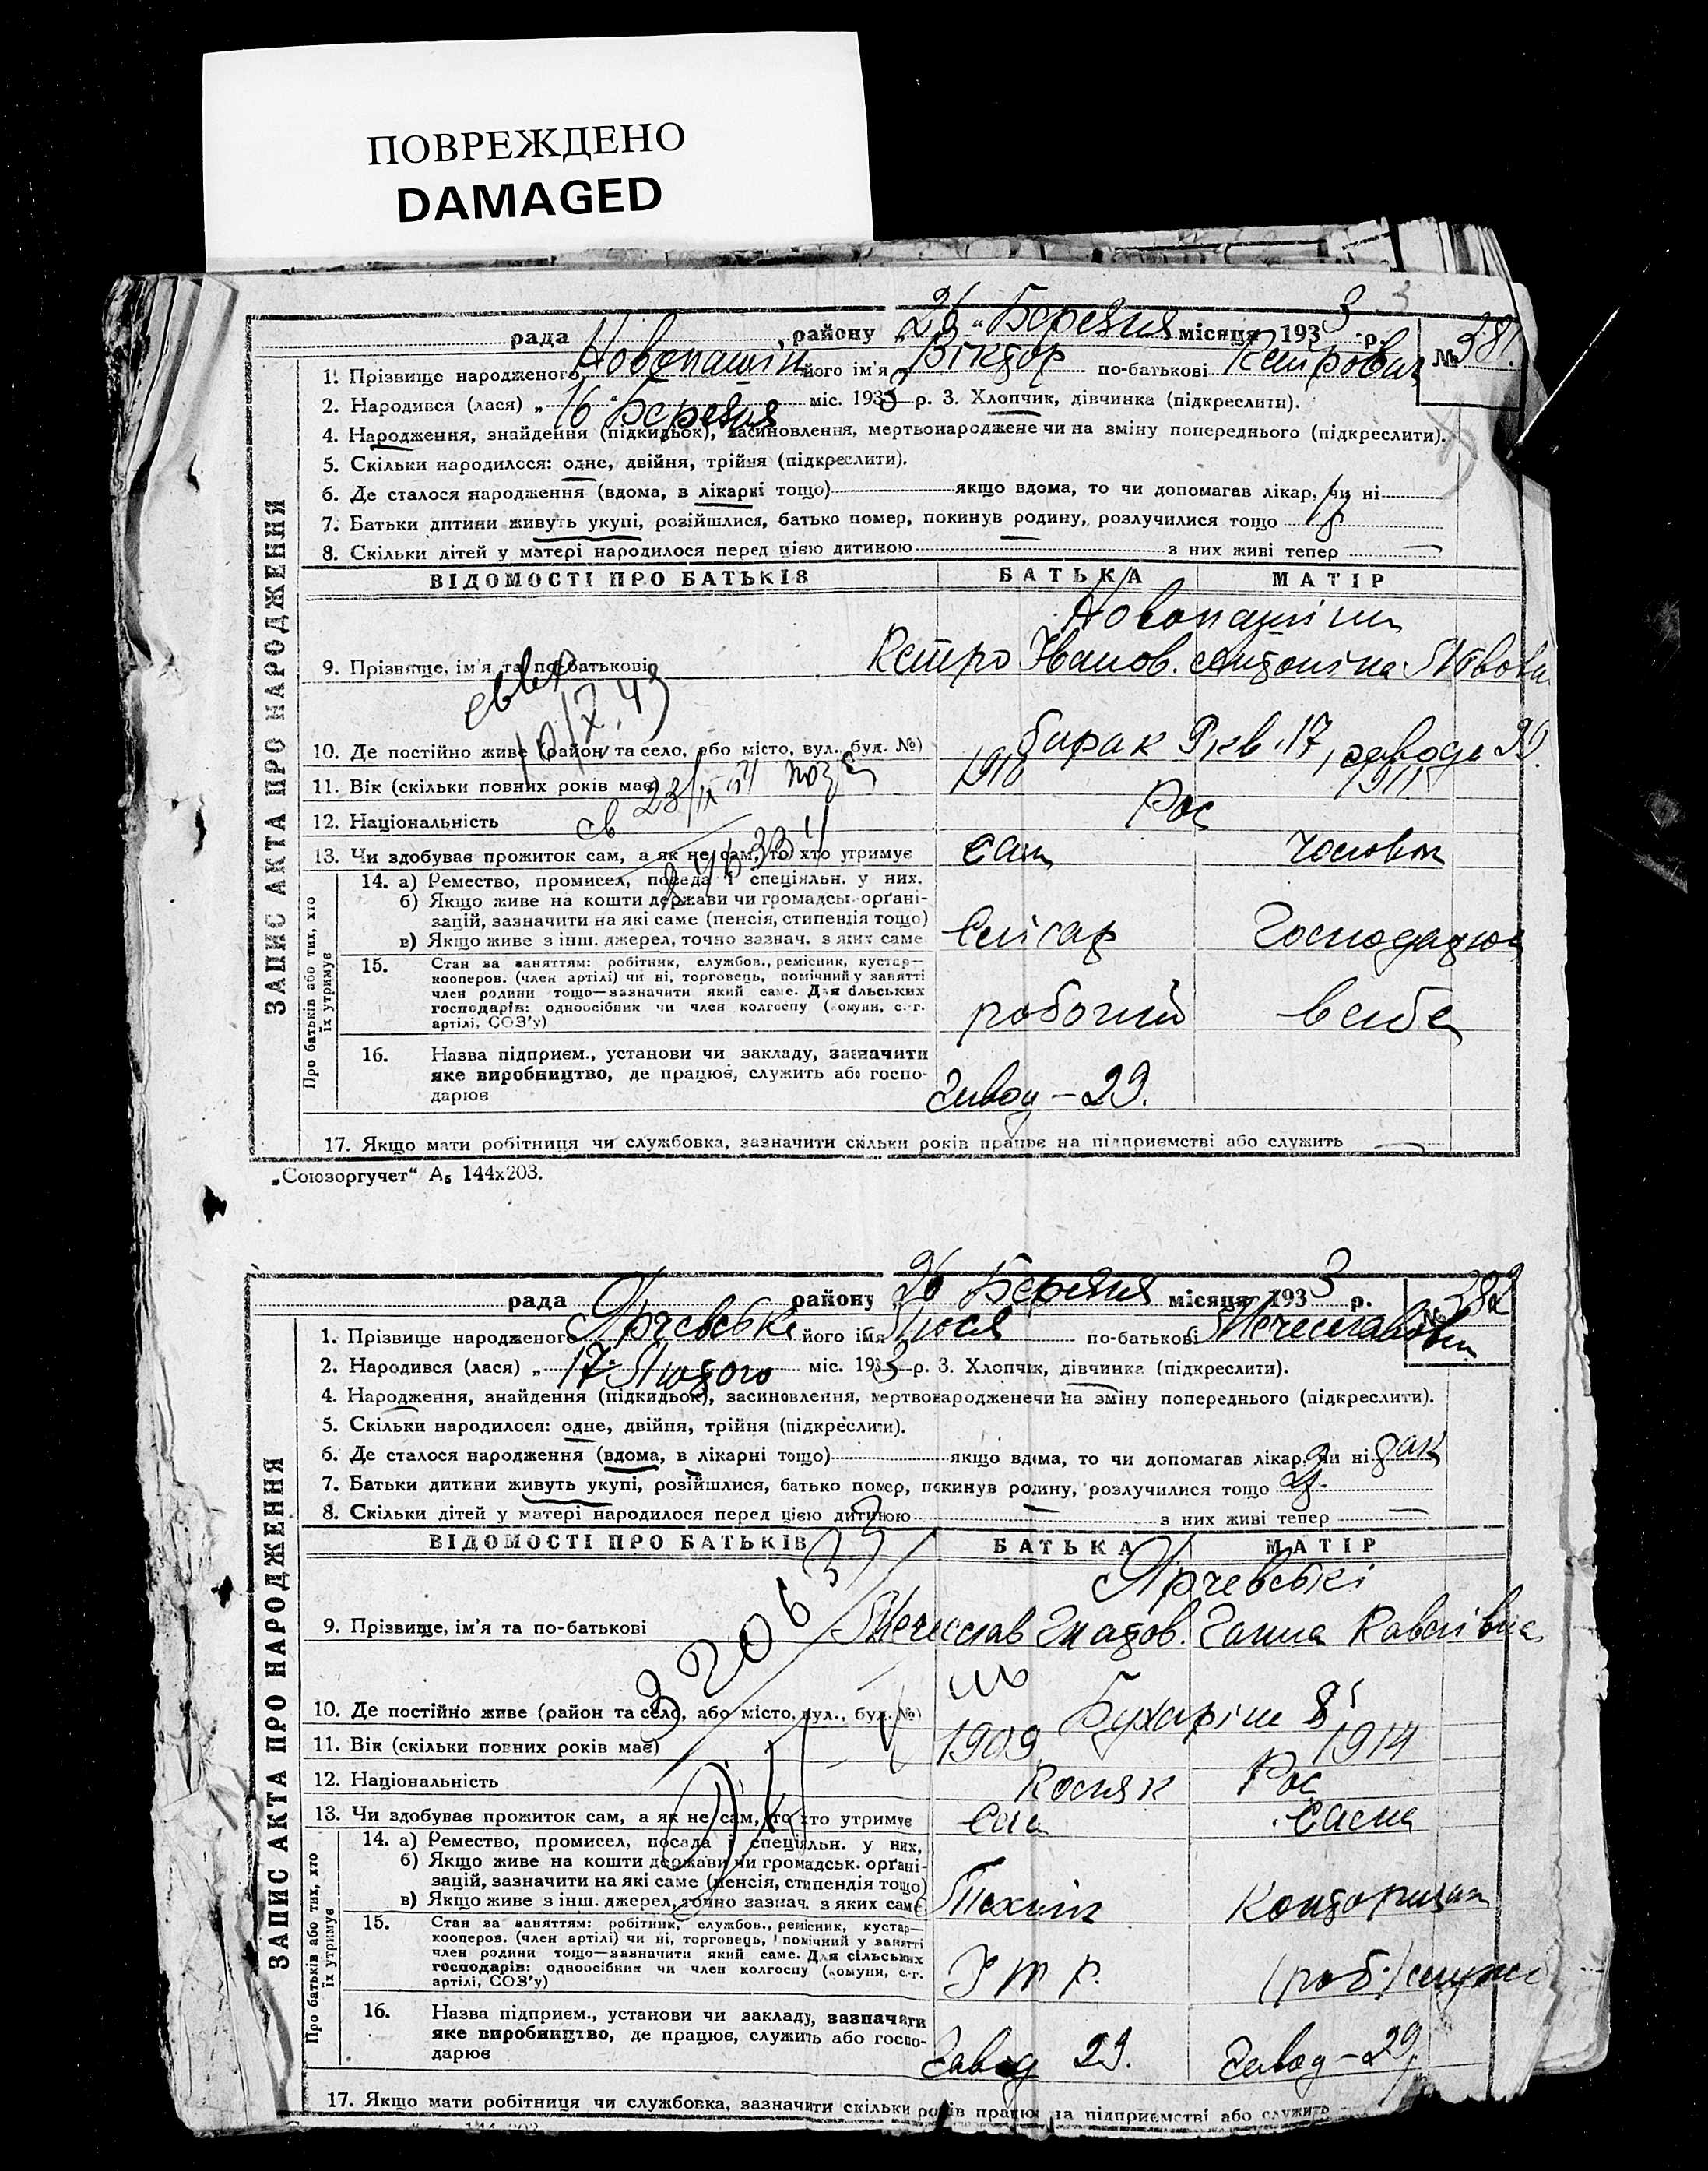 ПОВРЕЖДЕНО
DAMAGED
рада , району „26“ Березня місяця 1933 р. № 381.
1. Прізвище народженого Новопашін його ім'я Віктор по-батькові Петрович
2. Народився (лася) „16“ Березня міс. 1933 р. 3. Хлопчик, дівчинка (підкреслити).
4. Народження, знайдення (підкидьок), засиновлення, мертвонароджене чи на зміну попереднього (підкреслити).
5. Скільки народилося: одне, двійня, трійня (підкреслити).
6. Де сталося народження (вдома, в лікарні тощо) якщо вдома, то чи допомагав лікар, чи ні
7. Батьки дитини живуть укупі, розійшлися, батько помер, покинув родину, розлучилися тощо
8. Скільки дітей у матері народилося перед цією дитиною — з них живі тепер —
ЗАПИС АКТА ПРО НАРОДЖЕННЯ
ВІДОМОСТІ ПРО БАТЬКІВ БАТЬКА МАТІР
Новопашіни
9. Прізвище, ім'я та по-батькові Петро Іванов. Антоніна Львовна
10. Де постійно живе (район та село, або місто, вул., буд. №) барак 9, кв. 17, завода 29.
11. Вік (скільки повних років має) 1910 1911.
12. Національність Рос
13. Чи здобуває прожиток сам, а як не сам, то хто утримує сам чоловік
Про батьків або тих, хто їх утримує
14. а) Ремество, промисел, посада і спеціяльн. у них.
б) Якщо живе на кошти держави чи громадськ. орґані-
зацій, зазначити на які саме (пенсія, стипендія тощо)
в) Якщо живе з інш. джерел, точно зазнач. з яких саме Слісар Господарює
15. Стан за заняттям: робітник, службов., ремісник, кустар—
кооперов. (член артілі) чи ні, торговець, помічний у занятті
член родини тощо—зазначити який саме. Для сільських
господарів: одноосібник чи член колгоспу (комуни, с.-г.
артілі, СОЗ'у) робочий в себе
16. Назва підприєм., установи чи закладу, зазначити
яке виробництво, де працює, служить або госпо-
дарює Завод — 29.
17. Якщо мати робітниця чи службовка, зазначити скільки років працює на підприємстві або служить —
„Союзоргучет“ А₅ 144х203.
рада району 26 Березня місяця 1933 р. № 382
1. Прізвище народженого Ярчевські його імя Люся по-батькові Мечеславовн
2. Народився (лася) „17“ Лютого міс. 1933 р. 3. Хлопчік, дівчинка (підкреслити).
4. Народження, знайдення (підкидьок), засиновлення, мертвонародженечи на зміну попереднього (підкреслити).
5. Скільки народилося: одне, двійня, трійня (підкреслити).
6. Де сталося народження (вдома, в лікарні тощо) якщо вдома, то чи допомагав лікар, чи ні так
7. Батьки дитини живуть укупі, розійшлися, батько помер, покинув родину, розлучилися тощо
8. Скільки дітей у матері народилося перед цією дитиною — з них живі тепер —
ЗАПИС АКТА ПРО НАРОДЖЕННЯ
ВІДОМОСТІ ПРО БАТЬКІВ БАТЬКА МАТІР
Ярчевські
9. Прізвище, ім'я та по-батькові Мечеслав Гнатов. Ганна Павлівна
10. Де постійно живе (район та село, або місто, вул., буд. №) Бухаріна 8
11. Вік (скільки повних років має) 1909 1914
12. Національність Поляк Рос
13. Чи здобуває прожиток сам, а як не сам, то хто утримує Сам Сама
Про батьків або тих, хто їх утримує
14. а) Ремество, промисел, посада і спеціяльн. у них,
б) Якщо живе на кошти держави чи громадськ. орґані-
зацій, зазначити на які саме (пенсія, стипендія тощо)
в) Якщо живе з інш. джерел, точно зазнач. з яких саме Технік Конторниця
15. Стан за заняттям: робітник, службов., ремісник, кустар—
кооперов. (член артілі) чи ні, торговець, помічний у занятті
член родини тощо—зазначити який саме. Для сільських
господарів: одноосібник чи член колгоспу (комуни, с.-г.
артілі, СОЗ'у) І т р. (роб.) служ
16. Назва підприєм., установи чи закладу, зазначити
яке виробництво, де працює, служить або госпо-
дарює Завод 29. Завод — 29.
17. Якщо мати робітниця чи службовка, зазначити скільки років працює на підприємстві або служить